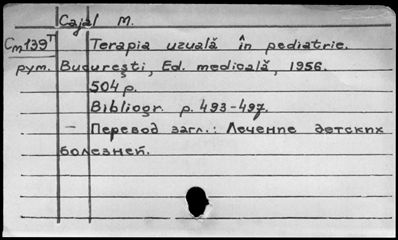 Cajal M.
Cm139T Terapia uzuală în pediatrie.
рум. Bucureşti, Ed. medicală, 1956.
504 p.
Bibliogr. p. 493-497.
– Перевод загл.: Лечение детских
болезней.